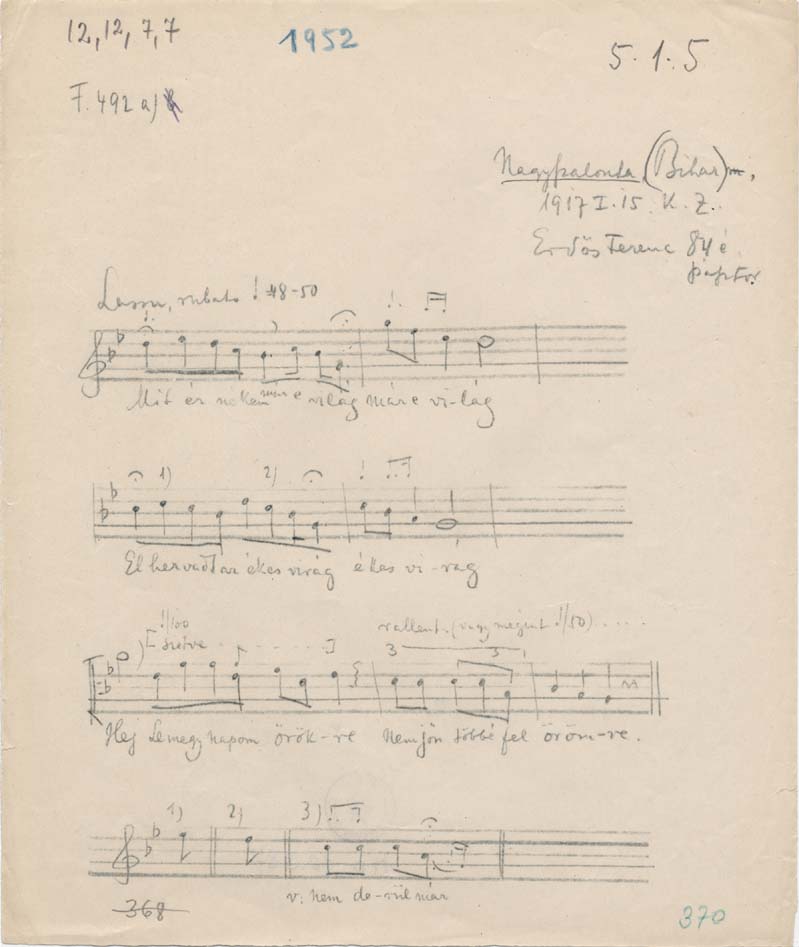 12, 12, 7, 7
1952
5.1.5
F. 492 a)
Nagyszalonta (Bihar),
1917 I. 15. K. Z.
Erdős Ferenc 84 é
pásztor
Lassu, rubato 48-50
Mit ér nékem már e világ már e vi-lág
1) 2)
Elhervadt az ékes virág ékes vi-rág
100
rallent. (vagy megint 50) .....
3 3
Hej Lemegy napom örök-re Nem jön többé fel öröm-re.
1) 2) 3)
v: nem de-rül már
368
370